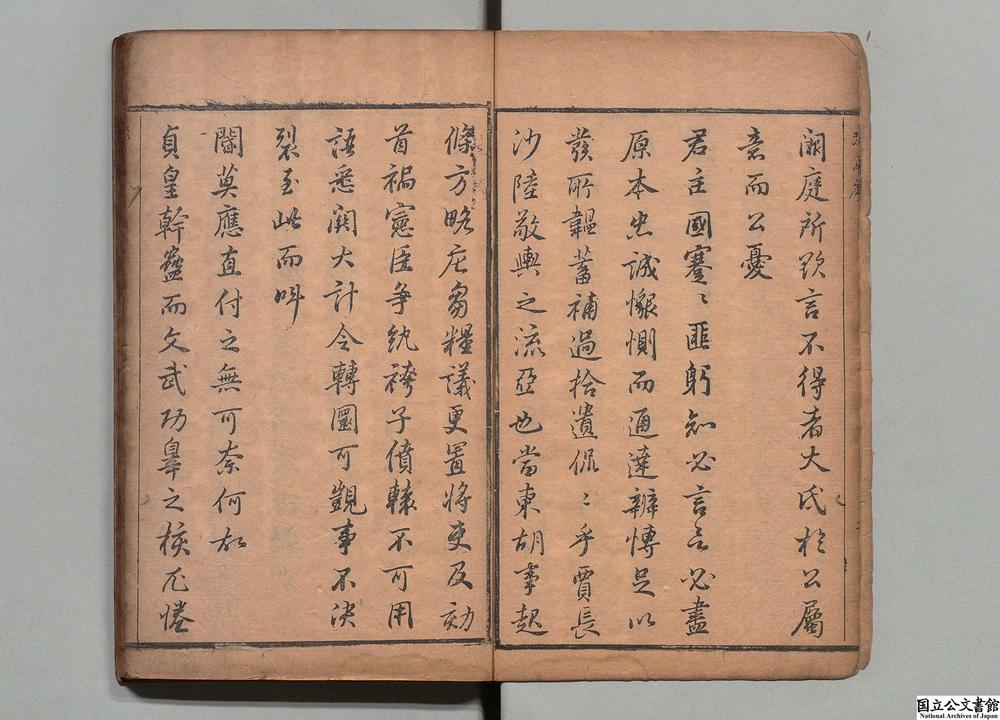 闕庭所欲言不得者大氐於公屬
意而公憂
君主國蹇〻匪躬知必言言必盡
原本忠誠懇惻而通達辯博足以
發所韞蓄補過拾遺侃〻乎賈長
沙陸敬輿之流亞也當東胡事起
條方略庀芻糧議更置將吏及劾
首禍憲臣爭紈袴子僨轅不可用
語悉關大計令轉圜可覬事不決
裂至此而叫
閽莫應直付之無可奈何故
貞皇幹蠱而文武功罪之核尤惓
国立公文書館
National Archives of Japan